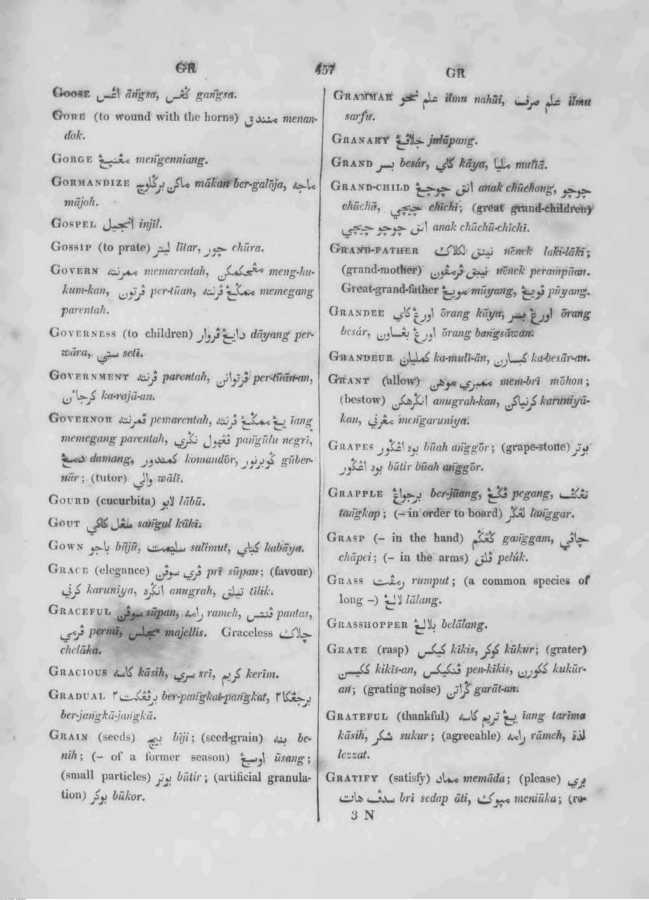 GR
457
GR
GOOSE اڠس āngsa, گڠس gangsa.
GORE (to wound with the horns) منندق menan-
dok.
GORGE مڠنيڠ mengenniang.
GORMANDIZE ماكن برگلوج mākan ber-galōja, ماجه
mājoh.
GOSPEL انجيل injīl.
GOSSIP (to prate) ليتر lītar, چور chūra.
GOVERN ممرنته memarentah, مڠحكمكن meng-hu-
kum-kan, ڤرتون per-tūan, ممڬڠ ڤرنته memegang
parentah.
GOVERNESS (to children) دايڠ ڤروار dāyang per-
wāra, ستي seti.
GOVERNMENT ڤرنته parentah, ڤرتوانن per-tūan-an,
كرجاان ka-rajā-an.
GOVERNOR ڤمرنته pemarentah, يڠ ممڬڠ ڤرنته īang
memegang parentah, ڤڠهولو نڬري pangūlu negri,
دمڠ damang, كمندور komandōr, گوبرنور gūber-
nūr; (tutor) والي wāli.
GOURD (cucurbita) لابو lābū.
GOUT سڠگل كاكي sangul kāki.
GOWN باجو bājū, سليمت salīmut, كباي kabāya.
GRACE (elegance) ڤري سوڤن prī sūpan; (favour)
كرني karunīya, انگره anugrah, تيلق tīlik.
GRACEFUL سوڤن sūpan, رامه rameh, ڤنتس pantas,
ڤرمي permī, مجلس majellis. Graceless چلاك
chelāka.
GRACIOUS كاسه kāsih, سري srī, كريم kerīm.
GRADUAL برڤڠكت٢ ber-pangkat-pangkat, برجڠكا٢
ber-jangkā-jangkā.
GRAIN (seeds) بيج bīji; (seed-grain) بنه be-
nih; (– of a former season) اوسڠ ūsang;
(small particles) بوتر būtir; (artificial granula-
tion) بوكر būkor.
GRAMMAR علم نحو ilmu nahūi, علم صرف ilmu
sarfu.
GRANARY جلاڤڠ jelāpang.
GRAND بسر besár, كاي kāya, مليا mulīa.
GRAND-CHILD انق چوچڠ anak chūchong, چوچو
chūchū, چيچي chīchī; (great grand-children)
انق چوچو چيچي anak chūchū-chīchī.
GRAND-FATHER نينق لكلاك nēnek laki-lāki;
(grand-mother) نينق ڤرمڤون nēnek perampūan.
Great-grand-father مويڠ mūyang, ڤويڠ pūyang.
GRANDEE اورڠ كاي ōrang kāya, اورڠ بسر ōrang
besár, اورڠ بڠساون ōrang bangsāwan.
GRANDEUR كمليان ka-mulī-ān, كبسارن ka-besār-an.
GRANT (allow) ممبري موهن mem-brī mōhon;
(bestow) انگرهكن anugrah-kan, كرنياكن karuniyā-
kan, مڠرني mengaruniya.
GRAPES بوه اڠگور būah anggōr; (grape-stone) بوتر
بوه اڠگور būtir būah anggōr.
GRAPPLE برجواڠ ber-jūang, ڤگڠ pegang, تڠكڤ
tangkap; (– in order to board) لڠگر langgar.
GRASP (– in the hand) گڠگم ganggam, چاڤي
chāpei; (– in the arms) ڤلق pelūk.
GRASS رمڤت rumput; (a common species of
long –) لالڠ lālang.
GRASSHOPPER بلالڠ belālang.
GRATE (rasp) كيكس kīkis, كوكر kūkur; (grater)
كيكسن kikīs-an, ڤڠكيكس pen-kīkis, ككورن kukūr-
an; (grating noise) گراتن garāt-an.
GRATEFUL (thankful) يڠ تريم كاسه īang tarīma
kāsih, شكر sukur; (agreeable) رامه rāmeh, لذة
lezzat.
GRATIFY (satisfy) ممادا memāda; (please) بري
سدڤ هات brī sedap āti, ميوك menīūka; (re-
3 N